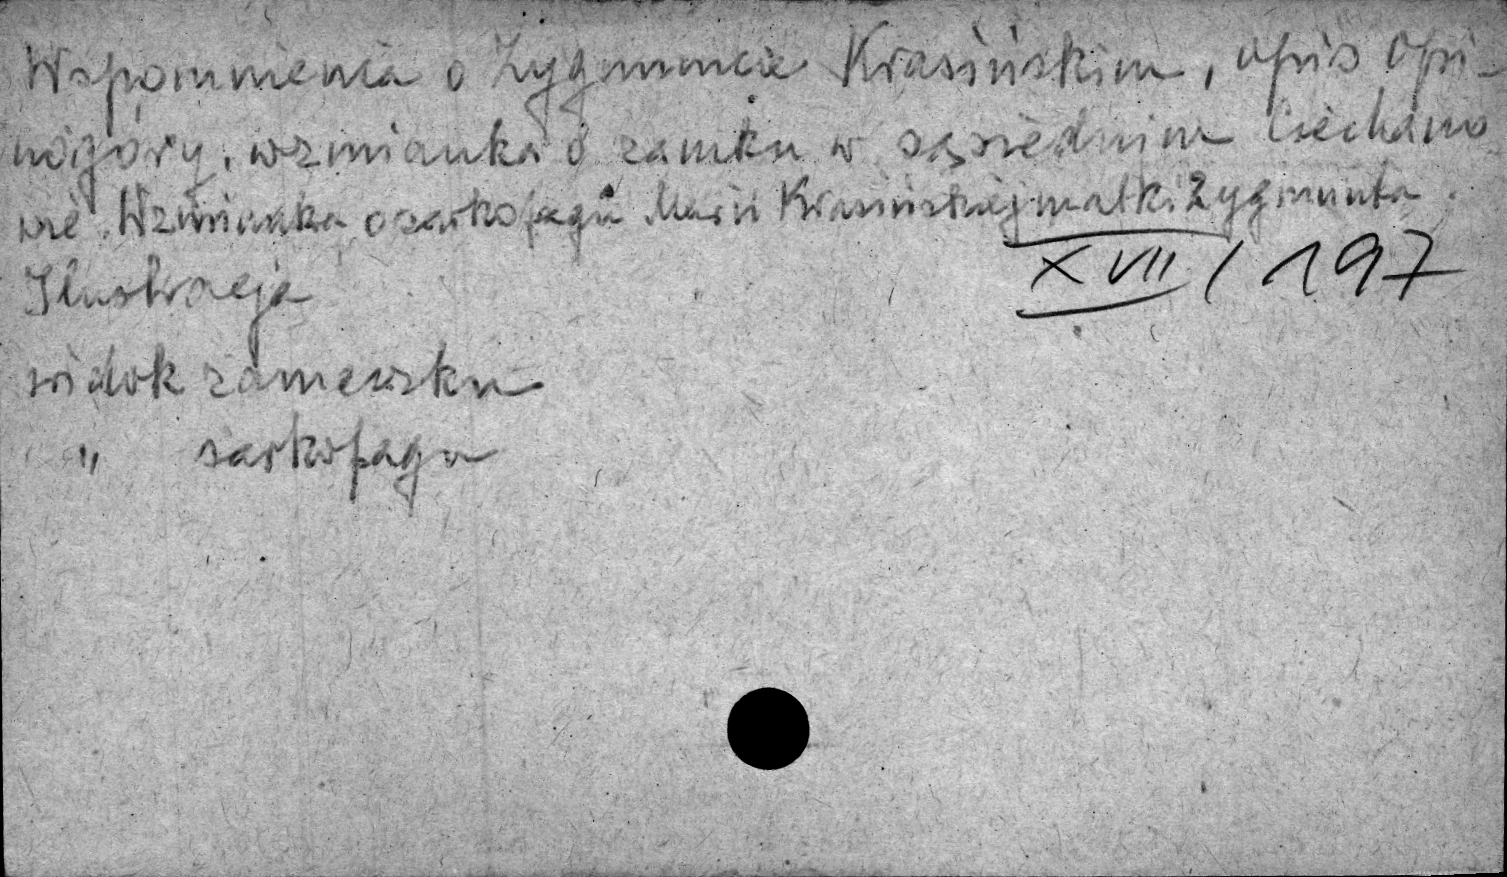 Wspomnienia o Zygmuncie Krasińskim, opis Opi-
nogóry, wzmianka o zamku w sąsiednim Ciechano
wie. Wzmianka o sarkofagu Marii Krasińskiej matki Zygmunta.
XVII / 197
Ilustracja
widok zameczku
" sarkofagu